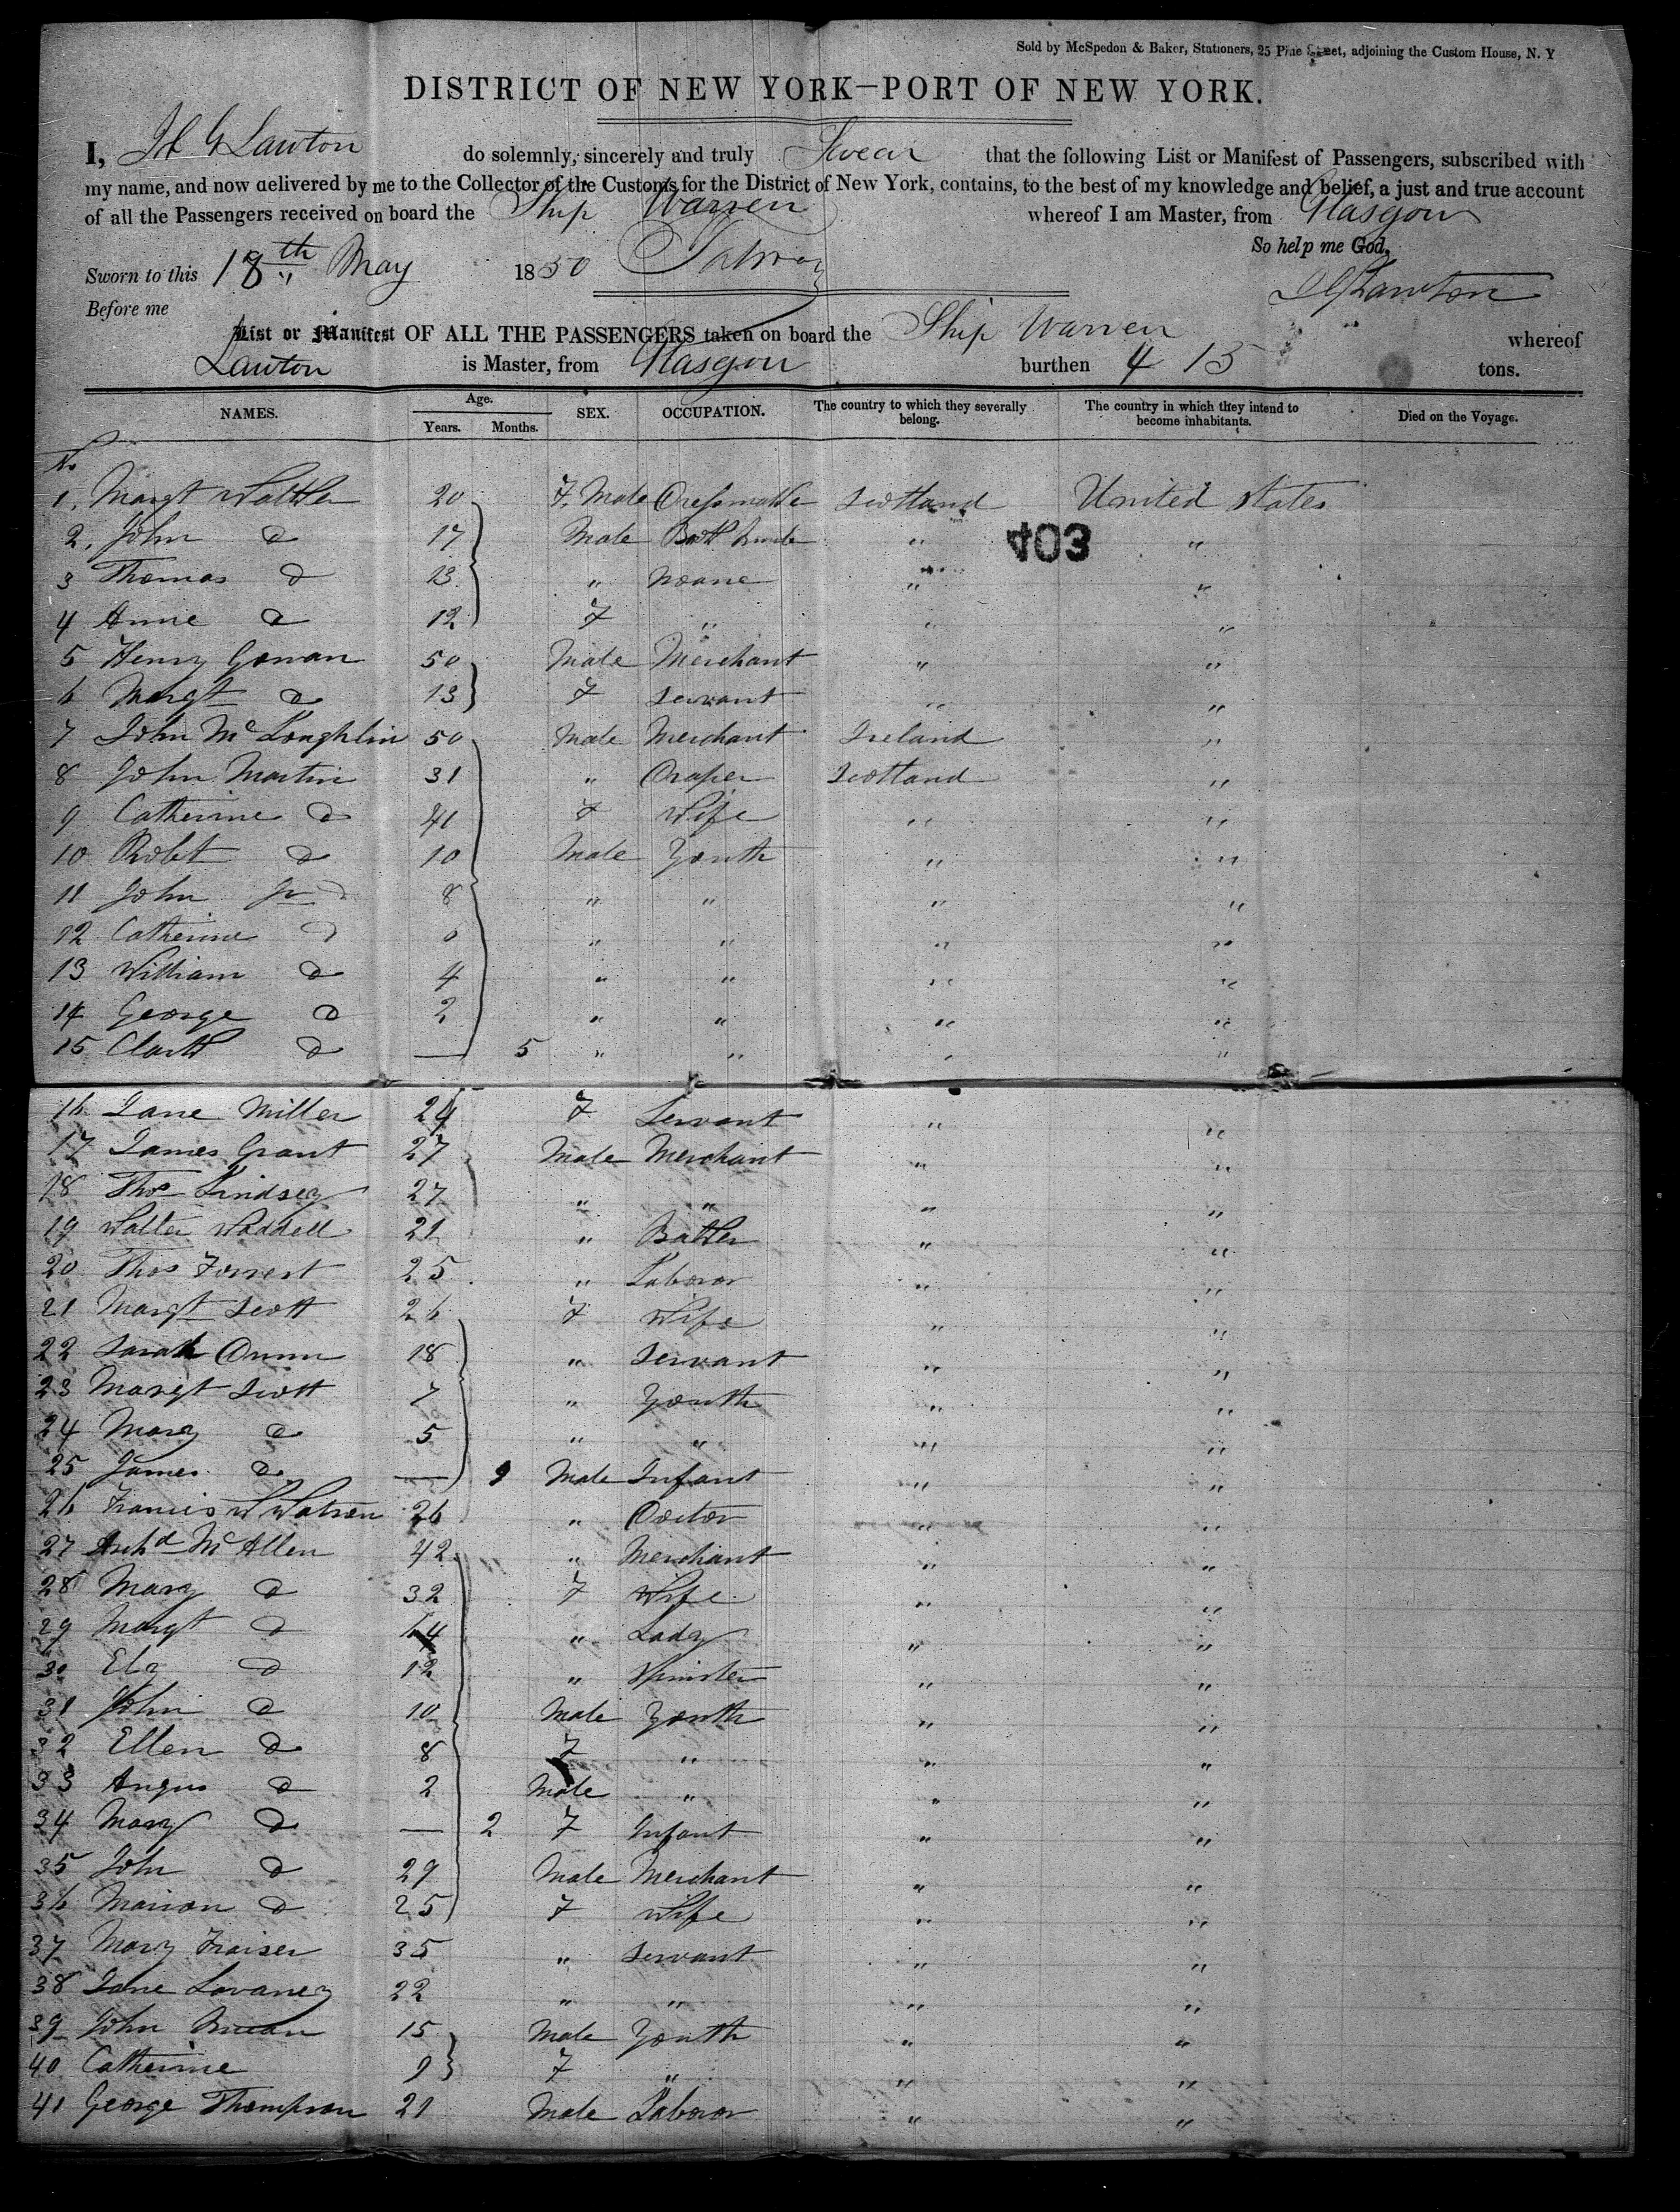 Sold by McSpedon & Baker, Stationers, 25 Pine Street, adjoining the Custom House, N. Y
DISTRICT OF NEW YORK—PORT OF NEW YORK.
I, Lawton do solemnly, sincerely and truly Swear that the following List or Manifest of Passengers, subscribed with
my name, and now delivered by me to the Collector of the Customs for the District of New York, contains, to the best of my knowledge and belief, a just and true account
of all the Passengers received on board the Ship Warren whereof I am Master, from Glasgow
So help me God,
Sworn to this 18th May 1850
Lawton
Before me
List or Manifest OF ALL THE PASSENGERS taken on board the Ship Warren whereof
Lawton is Master, from Glasgow burthen 413 tons.
NAMES. Age. Years. Months. SEX. OCCUPATION. The country to which they severally belong. The country in which they intend to become inhabitants. Died on the Voyage.
No
1. Margt 20 F. Male Dressmaker Scotland United States
403
2. John Do 17 Male " "
3 Thomas Do 13 " Noane " "
4 Anne Do 12 F " " "
5 Henry Gowan 50 Male Merchant " "
6 Margt Do 13 F Servant " "
7 John McLoughlin 50 Male Merchant Ireland "
8 John Martin 31 " Draper Scotland "
9 Catherine Do 41 F Wife " "
10 Robt Do 10 Male Youth " "
11 John Jr Do 8 " " " "
12 Catherine Do 6 " " " "
13 William Do 4 " " " "
14 George Do 2 " " " "
15 Clark Do — 5 " " " "
16 Jane Miller 24 F Servant " "
17 James Grant 27 Male Merchant " "
18 Thos Lindsey 27 " " " "
19 Walter Waddell 21 " " "
20 Thos Forrest 25 " Laboror " "
21 Margt Scott 26 F Wife " "
22 Sarah Dunn 18 " Servant " "
23 Margt Scott 7 " Youth " "
24 Mary Do 5 " " " "
25 James Do — 9 Male Infant " "
26 Francis W Watson 26 " Doctor " "
27 Archd McAllen 42 " Merchant " "
28 Mary Do 32 F Wife " "
29 Margt Do 14 " Lady " "
30 Elz Do 12 " Spinster " "
31 John Do 10 Male Youth " "
32 Ellen Do 8 F " " "
33 Angus Do 2 Male " " "
34 Mary Do — 2 F Infant " "
35 John Do 29 Male Merchant " "
36 Marion Do 25 F Wife " "
37 Mary Fraiser 35 " Servant " "
38 Jane 22 " " " "
39 John 15 Male Youth " "
40 Catherine 9 F " " "
41 George Thompson 21 Male Laboror " "